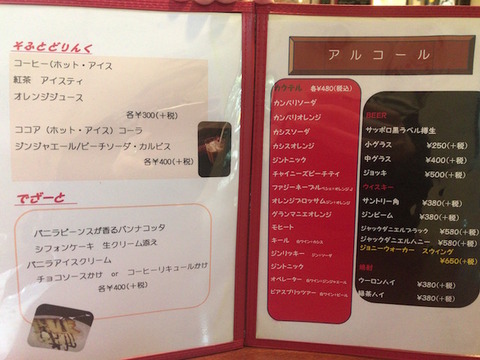 そふとどりんく
コーヒー(ホット・アイス
紅茶 アイスティ
オレンジジュース
各¥300(+税)
ココア(ホット・アイス)コーラ
ジンジャエール/ピーチソーダ・カルピス
各¥400(+税)
でざーと
バニラビーンスが香るパンナコッタ
シフォンケーキ 生クリーム添え
バニラアイスクリーム
チョコソースかけ or コーヒーリキュールかけ
各¥400(+税)
アルコール
カクテル 各¥480(税込)
カンパリソーダ
カンパリオレンジ
カシスソーダ
カシスオレンジ
ジントニック
チャイニーズピーチティ
ファジーネーブル
オレンジブロッサム ジン+オレンジ
グランマニエオレンジ
モヒート
キール 白ワイン+カシス
ジンリッキー ジン/ソーダ
ジントニック
オペレーター 白ワイン+ジンジャー
ビアスプリッツァー 白ワイン+ビール
BEER
サッポロ黒ラベル樽生
小グラス ¥250(+税)
中グラス ¥400(+税)
ジョッキ ¥500(+税)
ウイスキー
サントリー角 ¥380(+税)
ジンビーム ¥380(+税)
ジャックダニエルブラック ¥580(+税)
ジャックダニエルハニー ¥580(+税)
ジョニーウォーカー スウィング
¥650(+税)
焼酎
ウーロンハイ ¥380(+税)
緑茶ハイ ¥380(+税)